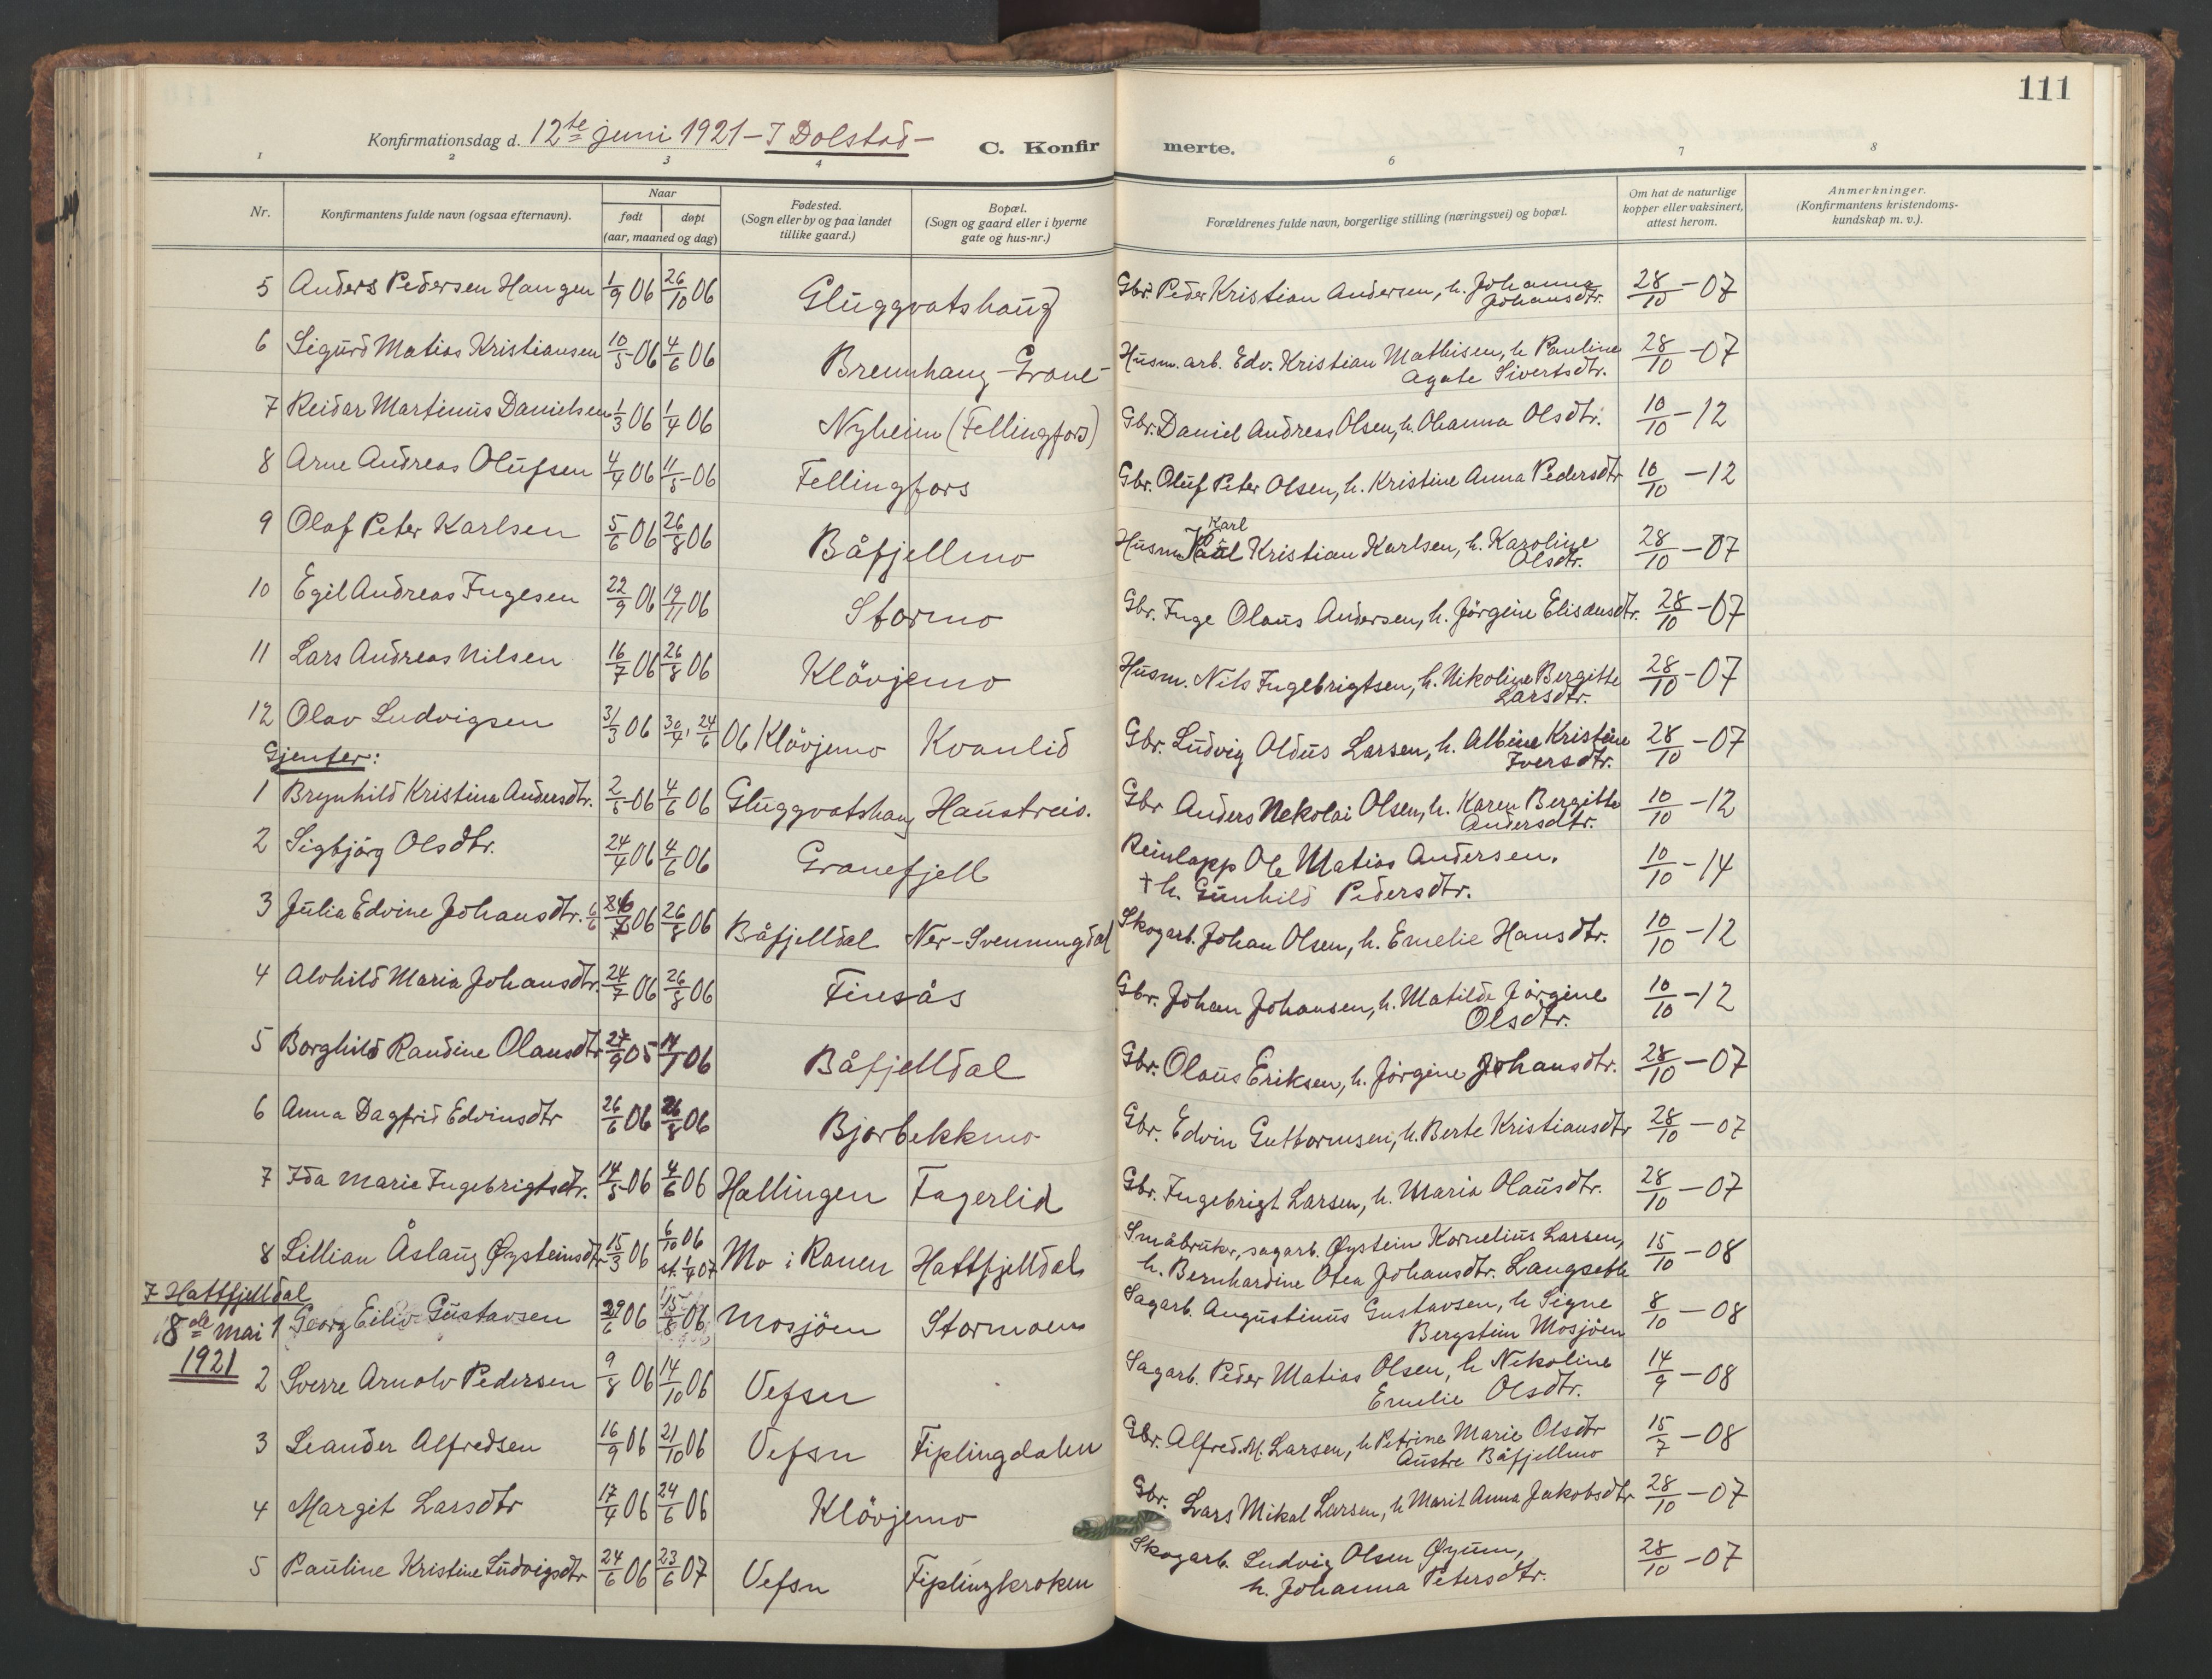 111
Konfirmationsdag d. 12te juni 1921 – I Dolstad –
C. Konfirmerte.
1 2 3 4 6 7 8
Nr. Konfirmantens fulde navn (ogsaa efternavn). Naar født døpt (aar, maaned og dag) Fødested. (Sogn eller by og paa landet tillike gaard.) Bopæl. (Sogn og gaard eller i byerne gate og hus-nr.) Forældrenes fulde navn, borgerlige stilling (næringsvei) og bopæl. Om hat de naturlige kopper eller vaksinert, attest herom. Anmerkninger. (Konfirmantens kristendomskundskap m. v.).
5 Anders Pedersen Haugen 1/9 06 26/10 06 Gluggvatshaug Gbr. Peder Kristian Andersen, h. Johanna Johansdtr. 28/10 – 07
6 Sigurd Matias Kristiansen 10/5 06 4/6 06 Brennhaug – Grane – Husm. arb. Edv. Kristian Mathisen, h. Pauline Agate Sivertsdtr. 28/10 – 07
7 Reidar Martinus Danielsen 1/3 06 1/4 06 Nyheim (Fellingfors) Gbr. Daniel Andreas Olsen, h. Ohanna Olsdtr. 10/10 – 12
8 Arne Andreas Olufsen 4/4 06 11/5 06 Fellingfors Gbr. Oluf Peter Olsen, h. Kristine Anna Pedersdtr 10/10 – 12
9 Olaf Peter Karlsen 5/6 06 26/8 06 Båfjellmo Husm. Karl Kristian Karlsen, h. Karoline Olsdtr. 28/10 – 07
10 Egil Andreas Ingesen 22/9 06 19/11 06 Stormo Gbr. Inge Olaus Andersen, h. Jörgine Elisæusdtr. 28/10 – 07
11 Lars Andreas Nilsen 16/7 06 26/8 06 Klövjemo Husm. Nils Ingebrigtsen, h. Nikoline Bergitte Larsdtr. 28/10 – 07
12 Olav Ludvigsen 31/3 06 30/4, 24/6 06 Klövjemo Kvanlid Gbr. Ludvig Aldus Larsen, h. Albine Kristine Iversdtr. 28/10 – 07
Gjenter:
1 Brynhild Kristina Andersdtr. 2/5 06 4/6 06 Gluggvatshaug Haustreis. Gbr Anders Nekolai Olsen, h. Karen Bergitte Andersdtr. 10/10 – 12
2 Sigbjörg Olsdtr. 24/4 06 4/6 06 Granefjell Reinlapp Ole Matias Andersen, † h. Gunhild Pedersdtr. 10/10 – 14
3 Julia Edvine Johansdtr. 6/6 06 26/8 06 Båfjelldal Ner-Svenningdal Skogarb. Johan Olsen, h. Emelie Hansdtr. 10/10 – 12
4 Alvhild Maria Johansdtr. 24/7 06 26/8 06 Finsås Gbr. Johan Johansen, h. Matilde Jörgine Olsdtr. 10/10 – 12
5 Borghild Randine Olausdtr 27/9 05 14/1 06 Båfjelldal Gbr. Olaus Eriksen, h. Jörgine Johansdtr. 28/10 – 07
6 Anna Dagfrid Edvinsdtr 26/6 06 26/8 06 Bjorbekkmo Gbr. Edvin Guttormsen, h. Berte Kristiansdtr 28/10 – 07
7 Ida Marie Ingebrigtsdtr. 14/5 06 4/6 06 Hallingen Fagerlid Gbr. Ingebrigt Larsen, h. Maria Olausdtr. 28/10 – 07
8 Lillian Åslaug Øysteinsdtr 15/3 06 6/10 06 st. 1/4 07 Mo i Ranen Hattfjelldal Småbruker, sagarb. Øystein Kornelius Larsen, h. Bernhardine Otea Johansdtr. Langseth 15/10 – 08
I Hattfjelldal
18de mai 1921
1 Georg Eiliv Gustavsen 29/6 06 15/8 06 Mosjöen Stormoen Sagarb. Augustinus Gustavsen, h Signe Bergstein Mosjöen 8/10 – 08
2 Sverre Arnolv Pedersen 9/8 06 14/10 06 Vefsn Sagarb. Peder Matias Olsen, h Nekoline Emelie Olsdtr. 14/9 – 08
3 Leander Alfredsen 16/9 06 21/10 06 Vefsn Fiplingdalen Gbr. Alfred. M. Larsen, h Petrine Marie Olsdtr Austre Båfjellmo 15/7 – 08
4 Margit Larsdtr 17/4 06 24/6 06 Klövjemo Gbr. Lars Mikal Larsen, h Marit Anna Jakobsdtr 28/10 – 07
5 Pauline Kristine Ludvigsdtr 24/6 06 23/6 07 Vefsn Fiplingkroken Skogarb. Ludvig Olsen Øyum, h. Johanna Petersdtr. 28/10 – 07